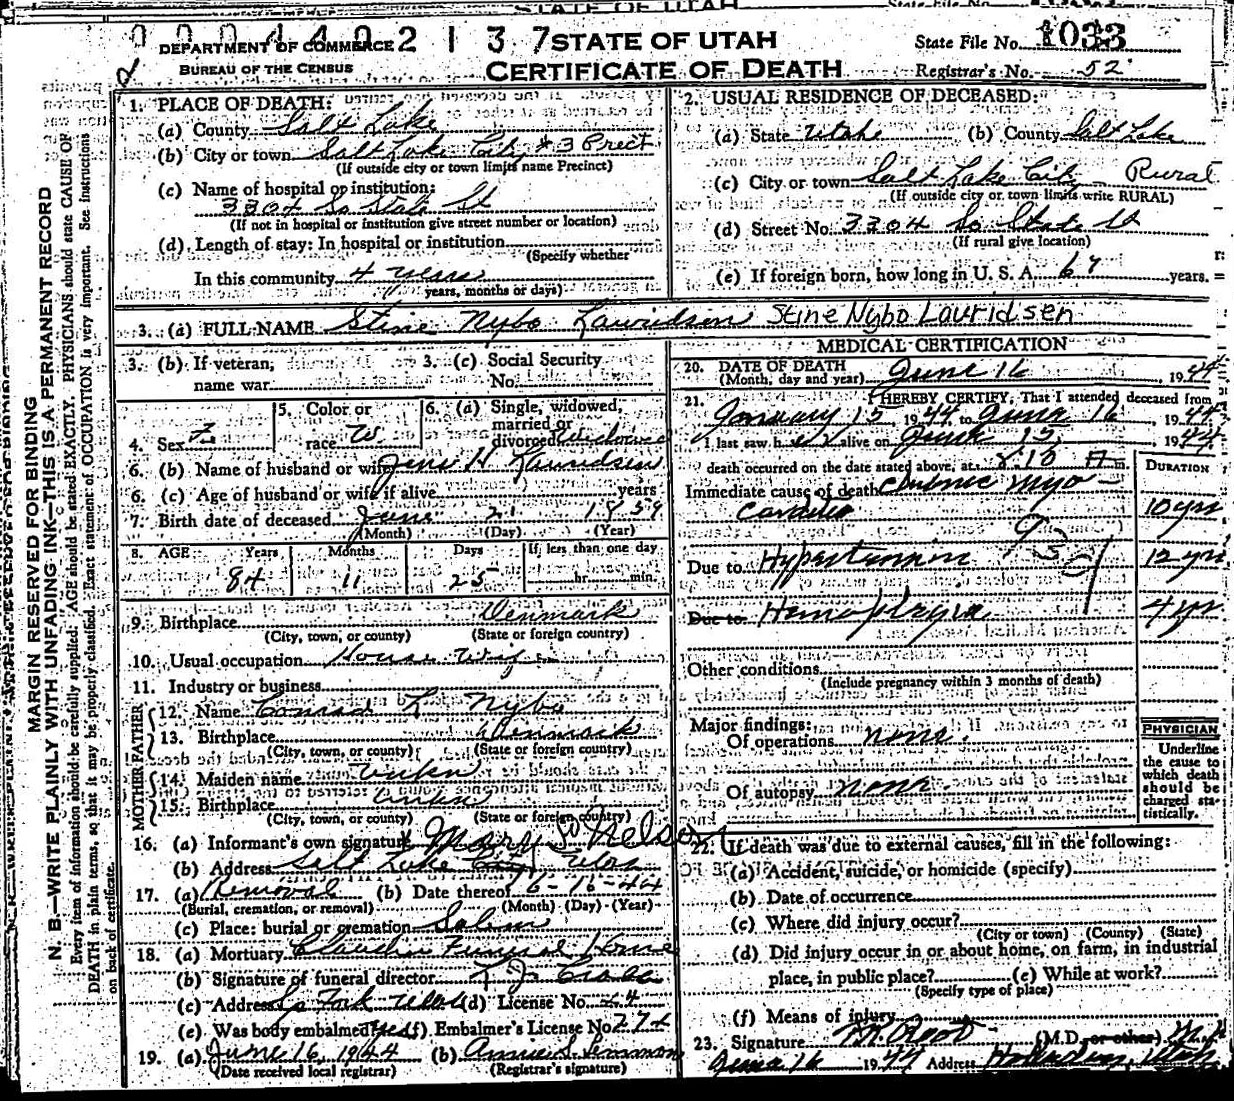 STATE OF UTAH
0004402137 STATE OF UTAH
DEPARTMENT OF COMMERCE
BUREAU OF THE CENSUS
CERTIFICATE OF DEATH
State File No. 1033
Registrar's No. 52
MARGIN RESERVED FOR BINDING
N. B.—WRITE PLAINLY WITH UNFADING INK—THIS IS A PERMANENT RECORD
Every item of information should be carefully supplied. AGE should be stated EXACTLY. PHYSICIANS should state CAUSE OF
DEATH in plain terms, so that it may be properly classified. Exact statement of OCCUPATION is very important. See instructions
on back of certificate.
1. PLACE OF DEATH:
(a) County Salt Lake
(b) City or town Salt Lake City #3 Prect
(If outside city or town limits name Precinct)
(c) Name of hospital or institution:
3304 So State St
(If not in hospital or institution give street number or location)
(d) Length of stay: In hospital or institution
(Specify whether
In this community 4 years
years, months or days)
2. USUAL RESIDENCE OF DECEASED:
(a) State Utah (b) County Salt Lake
(c) City or town Salt Lake City - Rural
(If outside city or town limits write RURAL)
(d) Street No. 3304 So State St
(If rural give location)
(e) If foreign born, how long in U. S. A. 67 years.
3. (a) FULL NAME Stine Nybo Lauridsen Stine Nybo Lauridsen
3. (b) If veteran, name war
3. (c) Social Security No.
4. Sex F
5. Color or race W
6. (a) Single, widowed, married or divorced Widowed
6. (b) Name of husband or wife Jens H Lauridsen
6. (c) Age of husband or wife if alive years
7. Birth date of deceased June 21 1859
(Month) (Day) (Year)
8. AGE Years Months Days If less than one day
84 11 25 hr. min.
9. Birthplace Denmark
(City, town, or county) (State or foreign country)
10. Usual occupation House Wife
11. Industry or business
FATHER
12. Name Conrad L Nybo
13. Birthplace Denmark
(City, town, or county) (State or foreign country)
MOTHER
14. Maiden name Unkn
15. Birthplace Unkn
(City, town, or county) (State or foreign country)
16. (a) Informant's own signature x Mary S Nelson
(b) Address Salt Lake City Utah
17. (a) Removal (b) Date thereof 6-16-44
(Burial, cremation, or removal) (Month) (Day) (Year)
(c) Place: burial or cremation Salem
18. (a) Mortuary Claudin Funeral Home
(b) Signature of funeral director
(c) Address Sp Fork Utah (d) License No. 44
(e) Was body embalmed Yes (f) Embalmer's License No 274
19. (a) June 16, 1944 (b) Annie S. Simmons
(Date received local registrar) (Registrar's signature)
MEDICAL CERTIFICATION
20. DATE OF DEATH
(Month, day and year) June 16, 1944
21. I HEREBY CERTIFY, That I attended deceased from
January 15 1944, to June 16, 1944
I last saw her alive on June 15, 1944
death occurred on the date stated above, at 8:10 A m.
DURATION
Immediate cause of death Chronic Myo-
carditis 10 yrs
Due to Hypertension 12 yrs
93D
Due to Hemoplegia 4 yrs
Other conditions
(Include pregnancy within 3 months of death)
Major findings:
Of operations none.
Of autopsy none.
PHYSICIAN
Underline
the cause to
which death
should be
charged sta-
tistically.
22. If death was due to external causes, fill in the following:
(a) Accident, suicide, or homicide (specify)
(b) Date of occurrence
(c) Where did injury occur?
(City or town) (County) (State)
(d) Did injury occur in or about home, on farm, in industrial
place, in public place? (e) While at work?
(Specify type of place)
(f) Means of injury
23. Signature (M.D. or other) M.D.
June 16 1944 Address Holladay, Utah